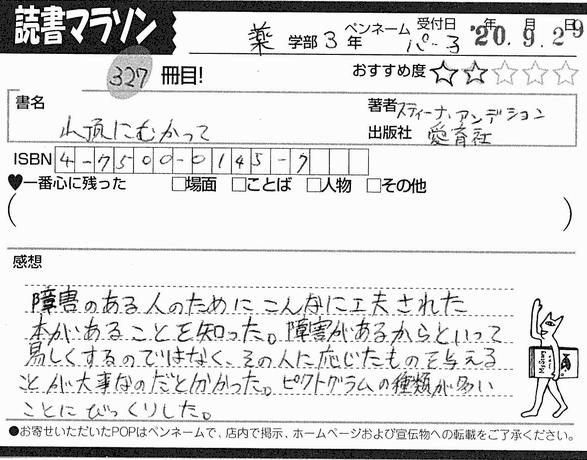 読書マラソン
薬 学部 3 年 ペンネーム パ子 受付日 '20.9.29 年 月 日
327 冊目! おすすめ度 ★★☆☆☆
書名 山頂にむかって
著者 スティーナ・アンデション
出版社 愛育社
ISBN 4-7500-0145-9
♥一番心に残った □場面 □ことば □人物 □その他
感想
障害のある人のために こんなに工夫された
本があることを知った。障害があるからといって
易しくするのではなく、その人に応じたものを与える
ことが大事なのだとわかった。ピクトグラムの種類が多い
ことにびっくりした。
●お寄せいただいたPOPはペンネームで、店内で掲示、ホームページおよび宣伝物への転載をご了承ください。